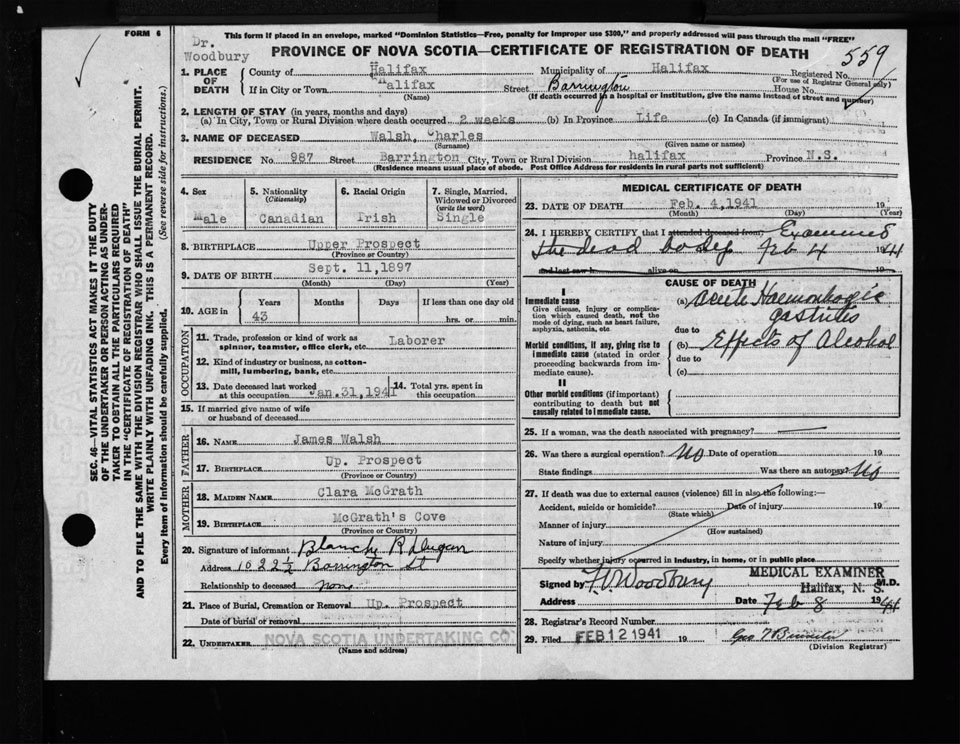 FORM 6
This form if placed in an envelope, marked "Dominion Statistics—Free, penalty for improper use $300," and properly addressed will pass through the mail "FREE"
Dr.
Woodbury
PROVINCE OF NOVA SCOTIA—CERTIFICATE OF REGISTRATION OF DEATH
559
SEC. 46—VITAL STATISTICS ACT MAKES IT THE DUTY
OF THE UNDERTAKER OR PERSON ACTING AS UNDER-
TAKER TO OBTAIN ALL THE PARTICULARS REQUIRED
IN THE "CERTIFICATE OF REGISTRATION OF DEATH"
AND TO FILE THE SAME WITH THE DIVISION REGISTRAR WHO SHALL ISSUE THE BURIAL PERMIT.
WRITE PLAINLY WITH UNFADING INK. THIS IS A PERMANENT RECORD.
Every item of information should be carefully supplied. (See reverse side for instructions.)
1. PLACE OF DEATH
County of Halifax Municipality of Halifax Registered No.
(For use of Registrar General only)
If in City or Town Halifax Street Barrington House No.
(Name) (If death occurred in a hospital or institution, give the name instead of street and number)
2. LENGTH OF STAY (in years, months and days)
(a) In City, Town or Rural Division where death occurred 2 weeks (b) In Province Life (c) In Canada (if immigrant)
3. NAME OF DECEASED Walsh, Charles
(Surname) (Given name or names)
RESIDENCE No. 987 Street Barrington City, Town or Rural Division halifax Province N.S.
(Residence means usual place of abode. Post Office Address for residents in rural parts not sufficient)
4. Sex
Male
5. Nationality
(Citizenship)
Canadian
6. Racial Origin
Irish
7. Single, Married,
Widowed or Divorced
(write the word)
Single
8. BIRTHPLACE Upper Prospect
(Province or Country)
9. DATE OF BIRTH Sept. 11,1897
(Month) (Day) (Year)
10. AGE in Years Months Days If less than one day old
43 hrs. or min.
OCCUPATION
11. Trade, profession or kind of work as
spinner, teamster, office clerk, etc. Laborer
12. Kind of industry or business, as cotton-
mill, lumbering, bank, etc.
13. Date deceased last worked
at this occupation Jan.31,1941
14. Total yrs. spent in
this occupation
15. If married give name of wife
or husband of deceased
FATHER
16. NAME James Walsh
17. BIRTHPLACE Up. Prospect
(Province or Country)
MOTHER
18. MAIDEN NAME Clara McGrath
19. BIRTHPLACE McGrath's Cove
(Province or Country)
20. Signature of informant Blanche R Dugan
Address 1022½ Barrington St
Relationship to deceased none
21. Place of Burial, Cremation or Removal Up. Prospect
Date of burial or removal
22. UNDERTAKER NOVA SCOTIA UNDERTAKING CO.
(Name and address)
MEDICAL CERTIFICATE OF DEATH
23. DATE OF DEATH Feb. 4,1941 19
(Month) (Day) (Year)
24. I HEREBY CERTIFY that I attended deceased from Examined
the dead body Feb 4 1941
and last saw h alive on 19
CAUSE OF DEATH
I
Immediate cause
Give disease, injury or complica-
tion which caused death, not the
mode of dying, such as heart failure,
asphyxia, asthenia, etc.
(a) Acute Haemorrhagic
gastritis
due to
Morbid conditions, if any, giving rise to
immediate cause (stated in order
proceeding backwards from im-
mediate cause).
(b) Effects of Alcohol
due to
(c)
II
Other morbid conditions (if important)
contributing to death but not
causally related to immediate cause.
25. If a woman, was the death associated with pregnancy?
26. Was there a surgical operation? No Date of operation 19
State findings Was there an autopsy? No
27. If death was due to external causes (violence) fill in also the following:—
Accident, suicide or homicide? Date of injury 19
(State which)
Manner of injury
(How sustained)
Nature of injury
Specify whether injury occurred in industry, in home, or in public place
Signed by F.V. Woodbury M.D.
MEDICAL EXAMINER
Halifax, N. S.
Address Date Feb 8 1941
28. Registrar's Record Number
29. Filed FEB 12 1941 19
(Division Registrar)